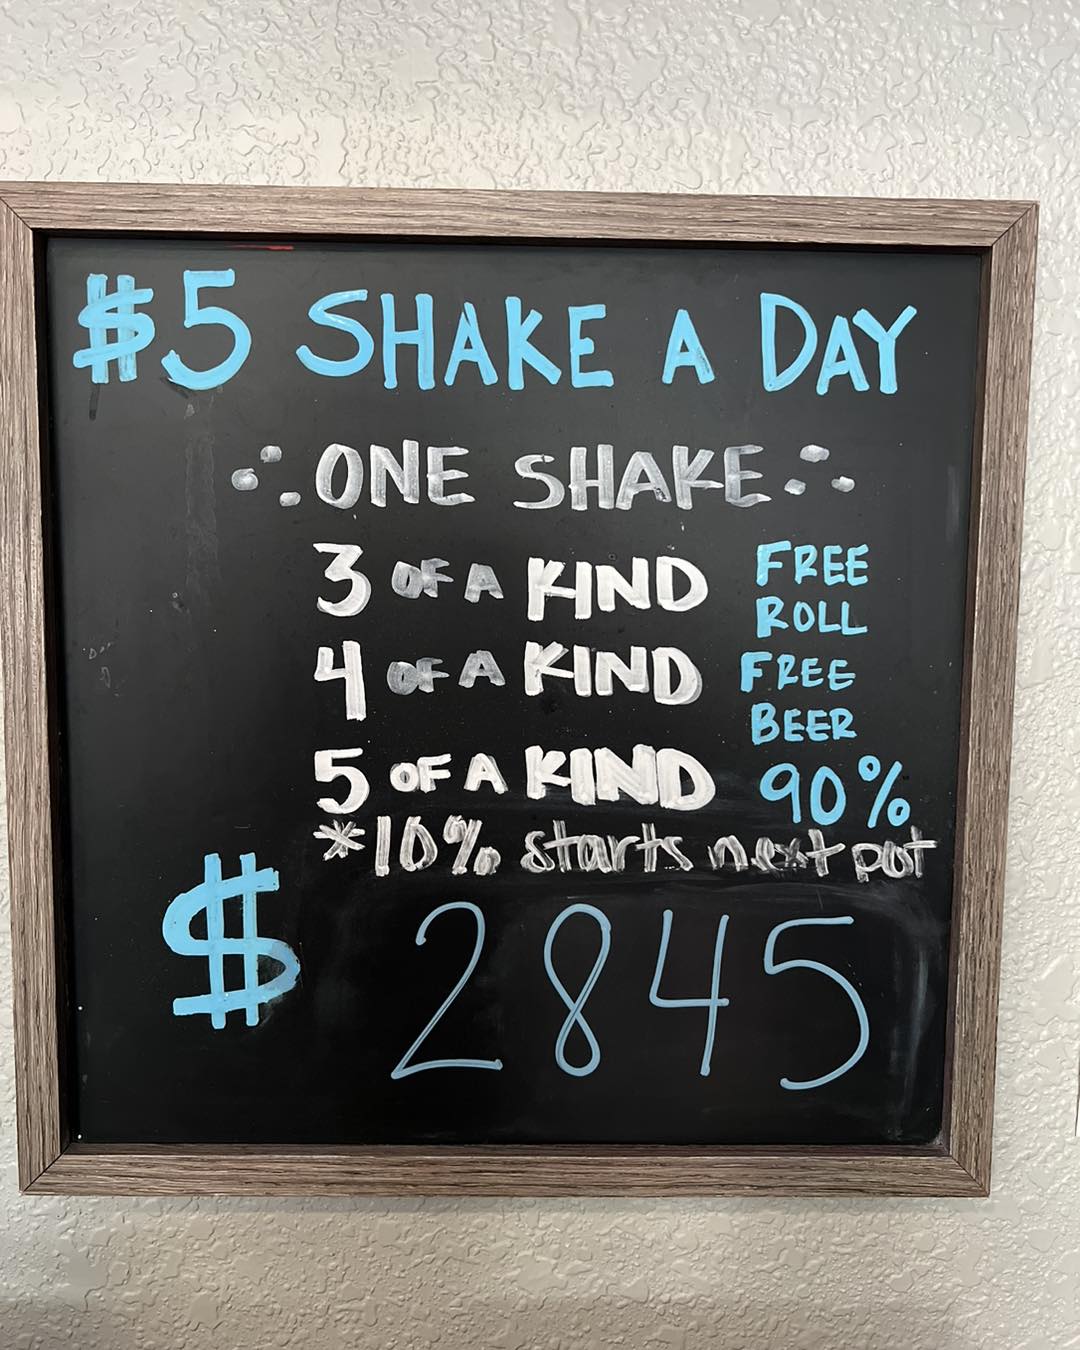 $5 SHAKE A DAY
ONE SHAKE
3 OF A KIND FREE ROLL
4 OF A KIND FREE BEER
5 OF A KIND 90%
*10% starts next pot
$ 2845